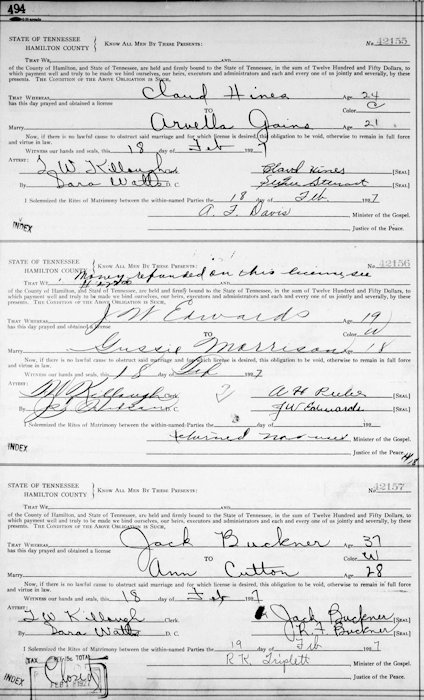 494
STATE OF TENNESSEE
HAMILTON COUNTY } KNOW ALL MEN BY THESE PRESENTS: No. 42155
THAT WE, AND
of the County of Hamilton, and State of Tennessee, are held and firmly bound to the State of Tennessee, in the sum of Twelve Hundred and Fifty Dollars, to
which payment well and truly to be made we bind ourselves, our heirs, executors and administrators and each and every one of us jointly and severally, by these
presents. THE CONDITION OF THE ABOVE OBLIGATION IS SUCH,
THAT WHEREAS, Claud Hines Age 24
has this day prayed and obtained a license TO Color C
Marry Aruella Goins Age 21
Now, if there is no lawful cause to obstruct said marriage and for which license is desired, this obligation to be void, otherwise to remain in full force
and virtue in law.
Witness our hands and seals, this 18 day of Feb 1927
ATTEST:
T W Killough Clerk. Claud Hines [SEAL]
By Sara Watts D. C. Stewart [SEAL]
I Solemnized the Rites of Matrimony between the within-named Parties the 18 day of Feb. 1927
A. F. Davis Minister of the Gospel.
Justice of the Peace.
INDEX
STATE OF TENNESSEE
HAMILTON COUNTY } KNOW ALL MEN BY THESE PRESENTS: No. 42156
Money refunded on this license, see
THAT WE, AND
of the County of Hamilton, and State of Tennessee, are held and firmly bound to the State of Tennessee, in the sum of Twelve Hundred and Fifty Dollars, to
which payment well and truly to be made we bind ourselves, our heirs, executors and administrators and each and every one of us jointly and severally, by these
presents. THE CONDITION OF THE ABOVE OBLIGATION IS SUCH,
THAT WHEREAS, J W Edwards Age 19
has this day prayed and obtained a license TO Color W
Marry Gussie Morrison Age 18
Now, if there is no lawful cause to obstruct said marriage and for which license is desired, this obligation to be void, otherwise to remain in full force
and virtue in law.
Witness our hands and seals, this 18 day of Feb 1927
ATTEST:
Killough Clerk. A H [SEAL]
By D. C. J W Edwards [SEAL]
I Solemnized the Rites of Matrimony between the within-named Parties the day of 192
returned not used Minister of the Gospel.
Justice of the Peace.
INDEX
STATE OF TENNESSEE
HAMILTON COUNTY } KNOW ALL MEN BY THESE PRESENTS: No. 42157
THAT WE, AND
of the County of Hamilton, and State of Tennessee, are held and firmly bound to the State of Tennessee, in the sum of Twelve Hundred and Fifty Dollars, to
which payment well and truly to be made we bind ourselves, our heirs, executors and administrators and each and every one of us jointly and severally, by these
presents. THE CONDITION OF THE ABOVE OBLIGATION IS SUCH,
THAT WHEREAS, Jack Buckner Age 37
has this day prayed and obtained a license TO Color W
Marry Ann Cutton Age 28
Now, if there is no lawful cause to obstruct said marriage and for which license is desired, this obligation to be void, otherwise to remain in full force
and virtue in law.
Witness our hands and seals, this 18 day of Feb 1927
ATTEST:
T W Killough Clerk. Jack Buckner [SEAL]
By Sara Watts D. C. R. F. Buckner [SEAL]
I Solemnized the Rites of Matrimony between the within-named Parties the 19 day of Feb 1927
R. K. Triplett Minister of the Gospel.
Justice of the Peace.
TAX TOTAL
FEB 1927
INDEX